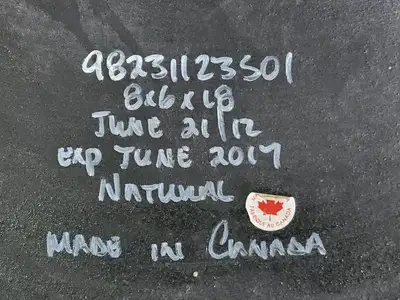 98231123501
8x6x18
JUNE 21/12
exp JUNE 2017
NATURAL
MADE IN CANADA